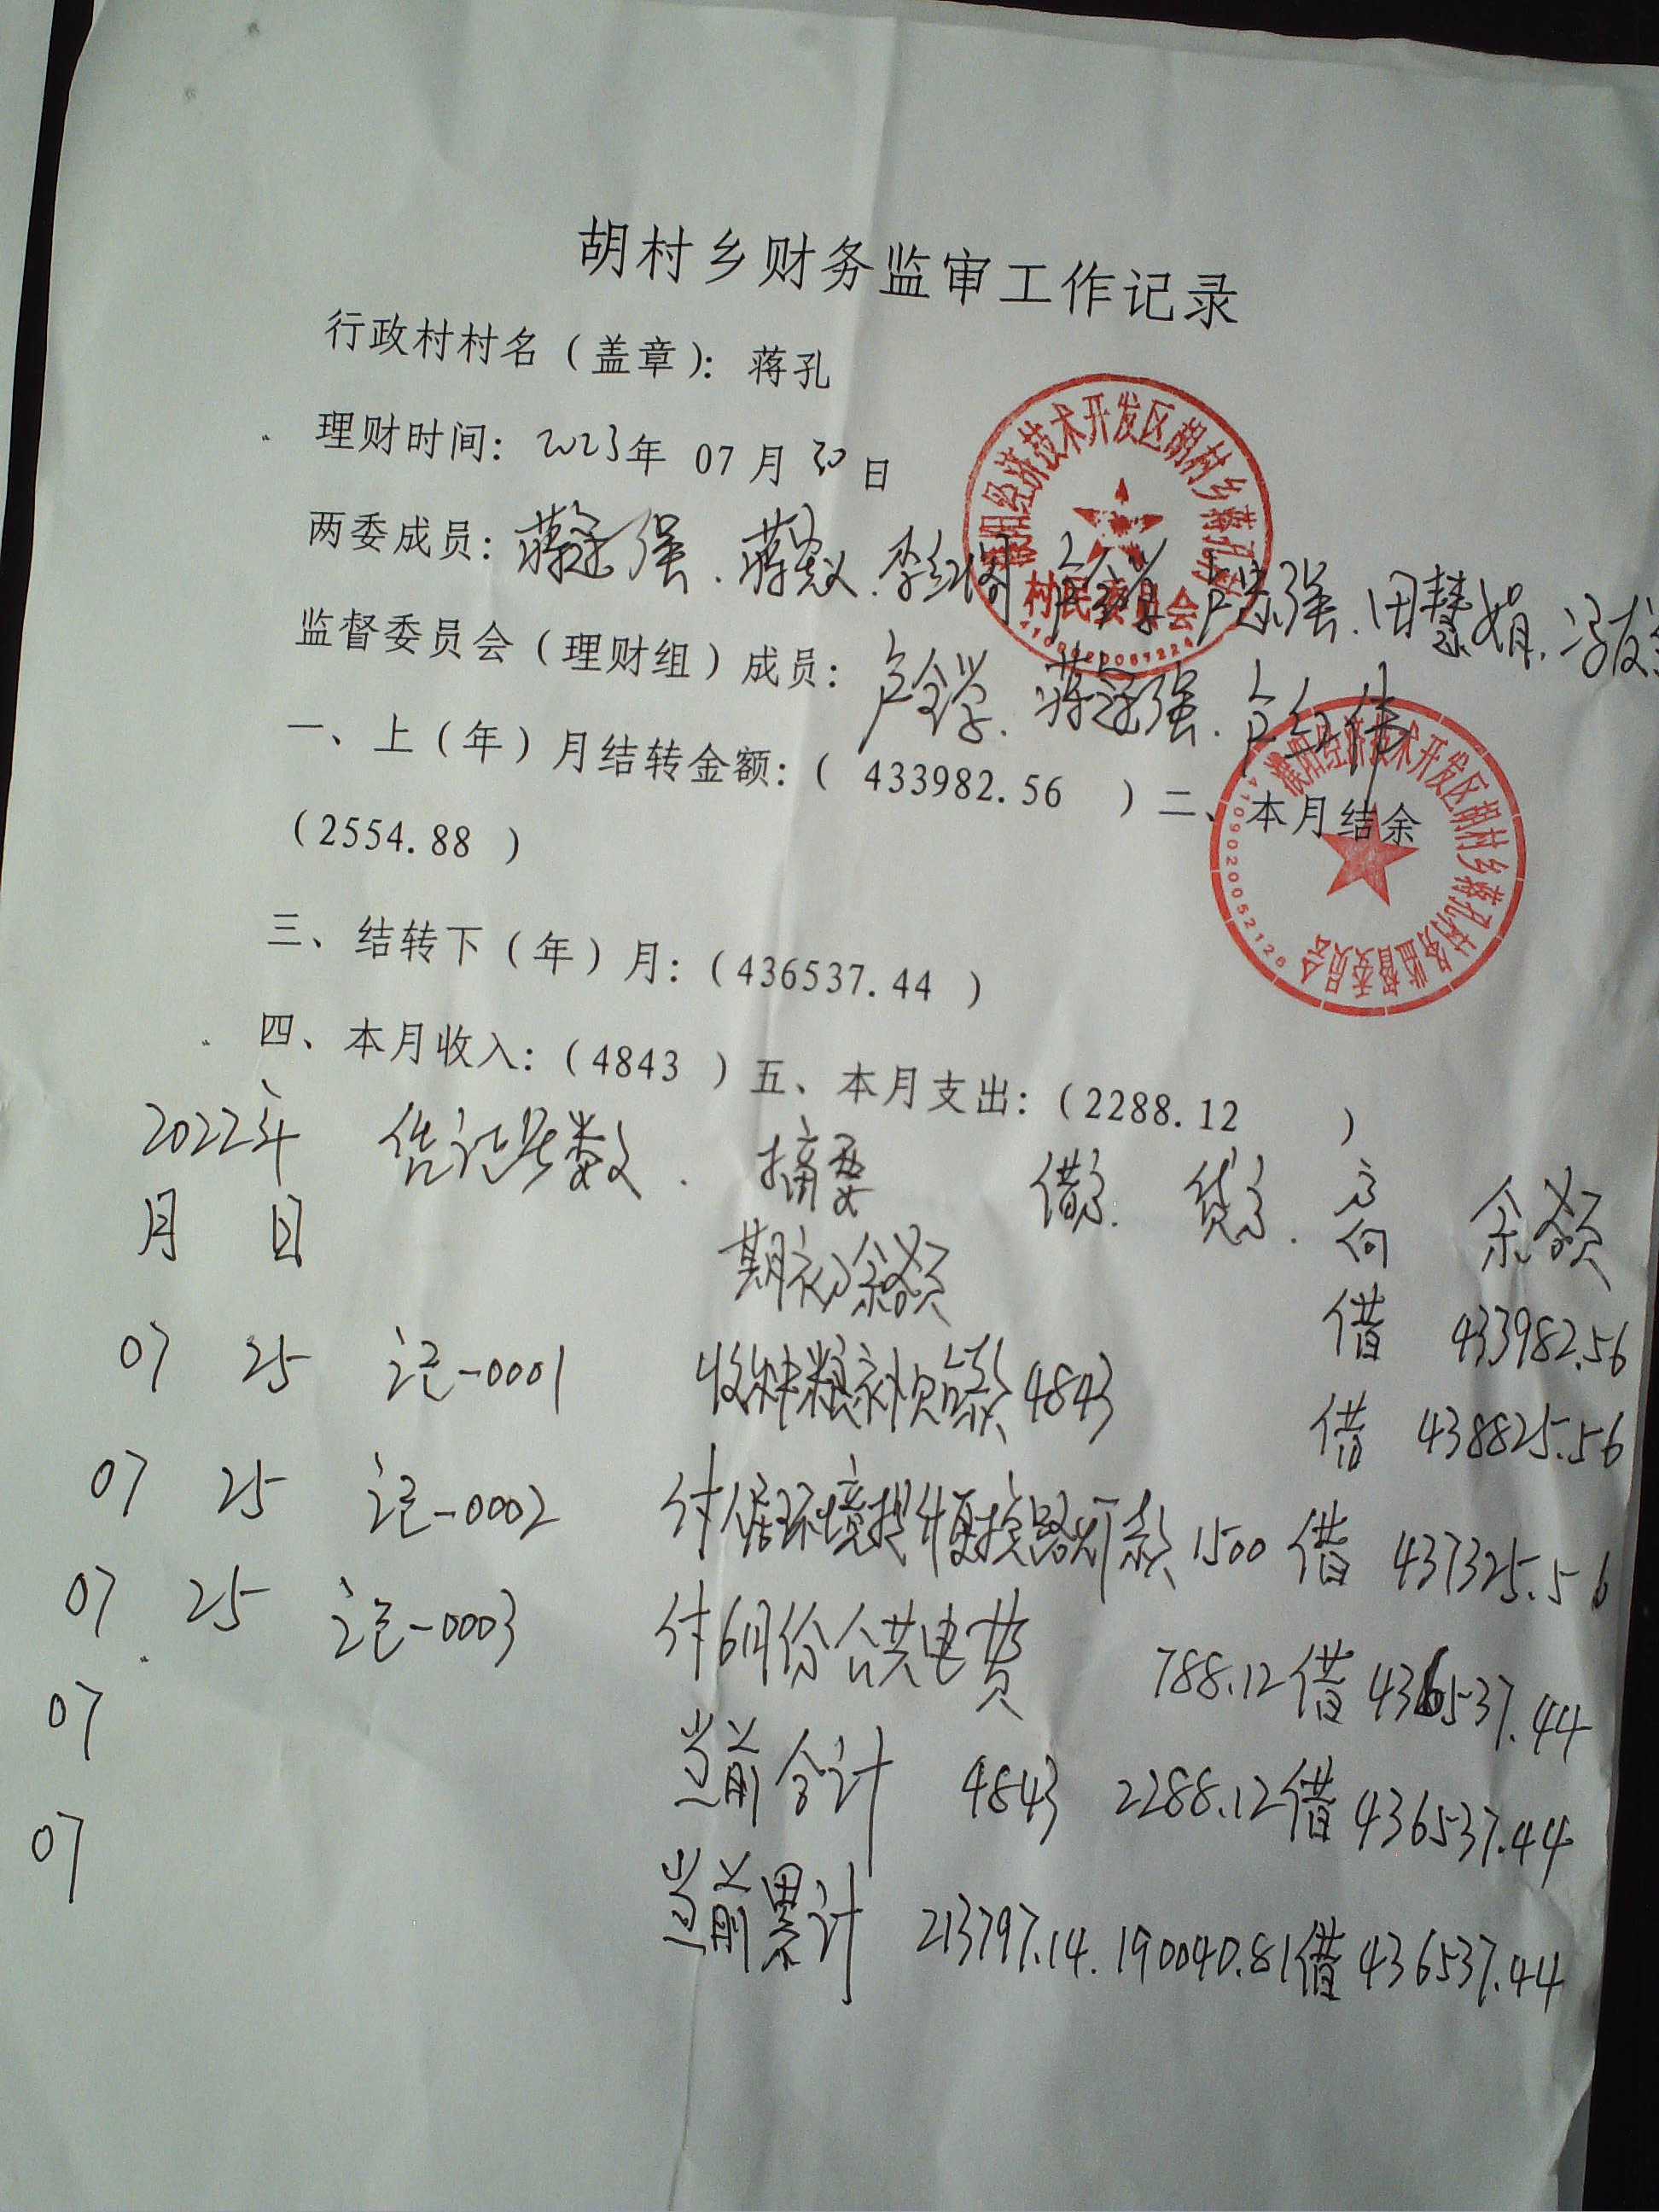 胡村乡财务监审工作记录
行政村村名（盖章）：蒋孔
理财时间：2023年 07月30日
两委成员：蒋冠强、蒋义、李红 田慧娟、
监督委员会（理财组）成员：卢金学、蒋冠强、伟
一、上（年）月结转金额：（ 433982.56 ）二、本月结余
（2554.88 ）
三、结转下（年）月：（436537.44 ）
四、本月收入：（4843 ）五、本月支出：（2288.12 ）
濮阳经济技术开发区胡村乡蒋孔村
村民委员会
濮阳经济技术开发区胡村乡蒋孔村务监督委员会
4109020052126
2022年 凭证号数 摘要 借方 贷方 方向 余额
月 日
期初余额 借 433982.56
07 25 记-0001 收种粮补贴款 4843 借 438825.56
07 25 记-0002 付人居环境提升更换路灯款 1500 借 437325.56
07 25 记-0003 付6月份公共电费 788.12 借 436537.44
07 当前合计 4843 2288.12 借 436537.44
07 当前累计 213797.14 190040.81 借 436537.44